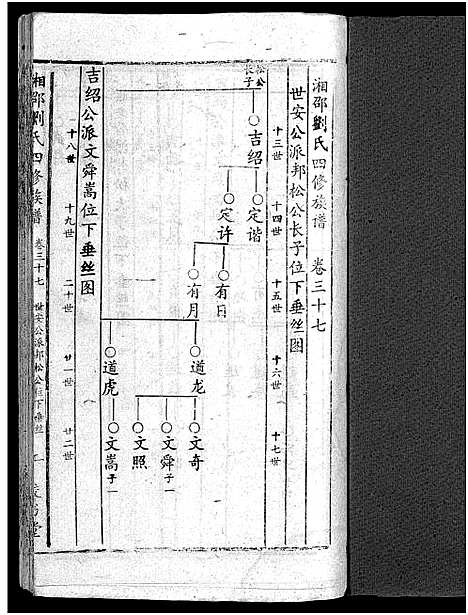 湘邵劉氏四修族谱 卷三十七
世安公派邦松公长子位下垂丝图
十三世 十四世 十五世 十六世 十七世
松公长子
吉绍
定谐
定许
有日
有月
道龙
道虎
文奇
文舜 子一
文照
文嵩 子一
吉绍公派文舜嵩位下垂丝图
十八世 十九世 二十世 廿一世 廿二世
湘邵劉氏四修族谱 卷三十七 世安公派邦松公位下垂丝 一